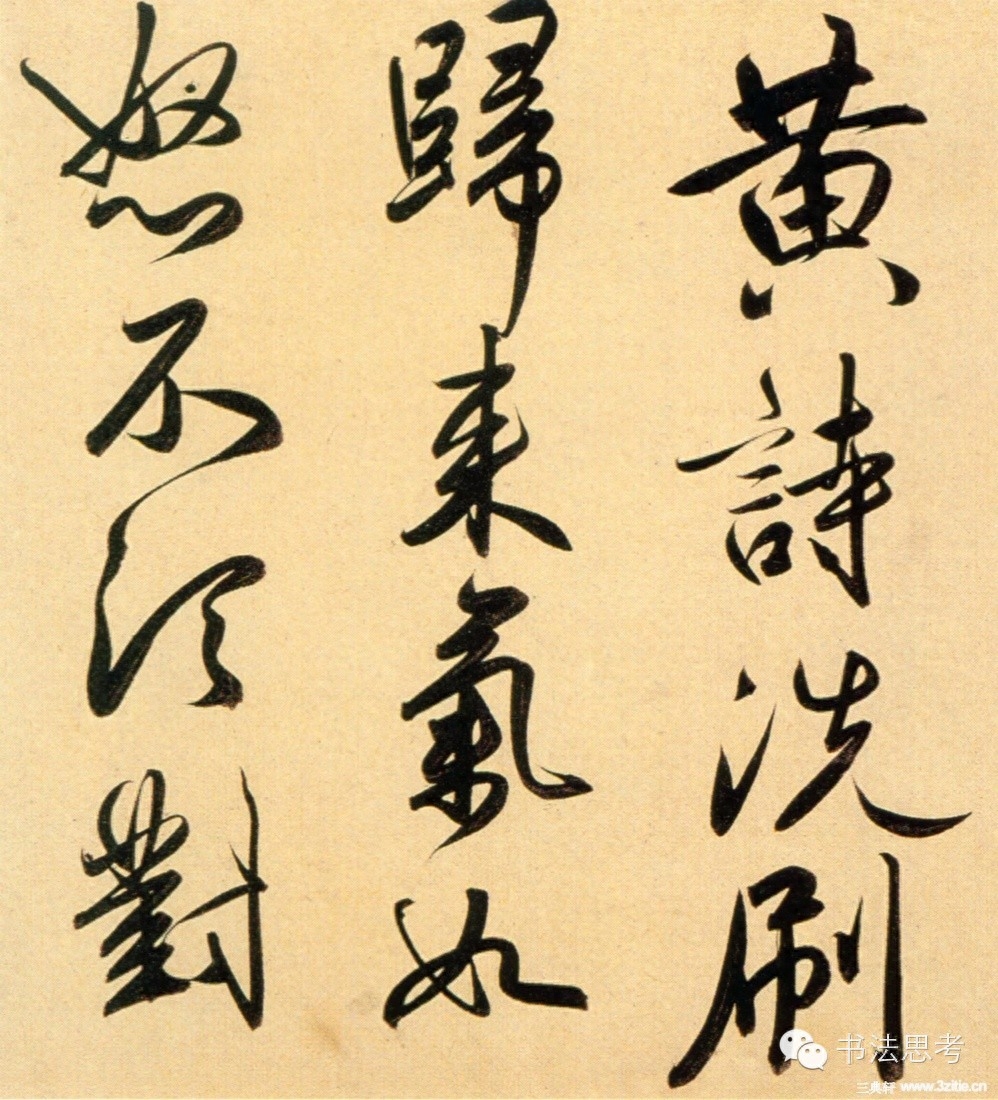 黄詩洗刷
歸来氣如
怒不須對
书法思考
三典轩 www.3zitie.cn